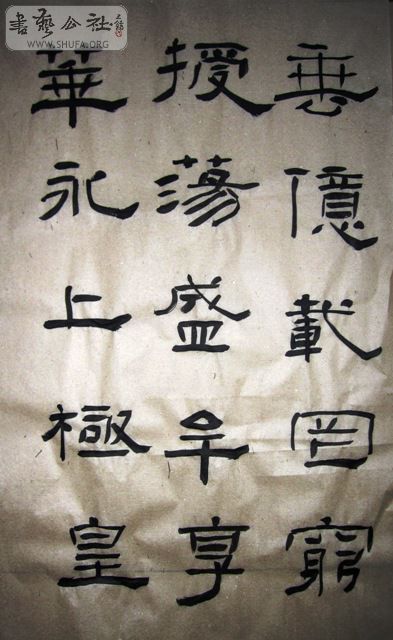 書藝公社
WWW.SHUFA.ORG
垂億載罔窮
授蕩盛牟享
華永上極皇